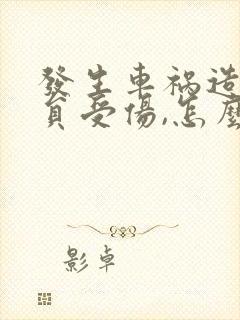 發生車禍造
員受傷,怎麼
影卓